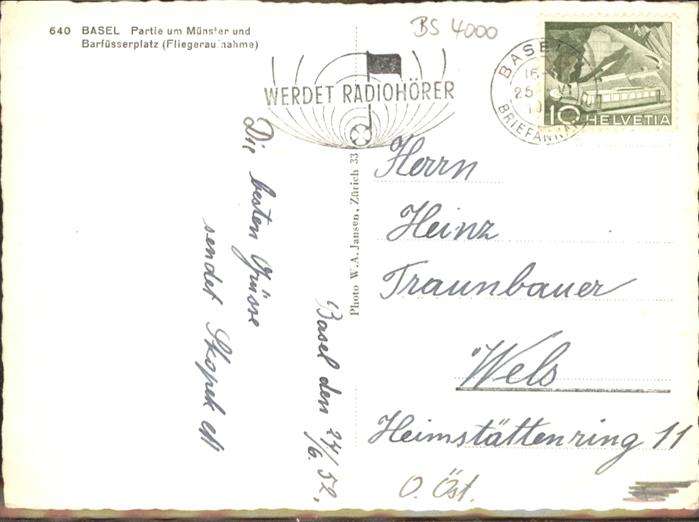 640 BASEL Partie um Münster und
Barfüsserplatz (Fliegeraufnahme)
BS 4000
WERDET RADIOHÖRER
BASEL
16
25
BRIEFANNAHME
10 HELVETIA
Photo W. A. Jansen, Zürich 33
Basel den 24/6. 52,
Die besten Grüsse
sendet Skopek
Herrn
Heinz
Traunbauer
Wels
Heimstättenring 11
O. Öst.